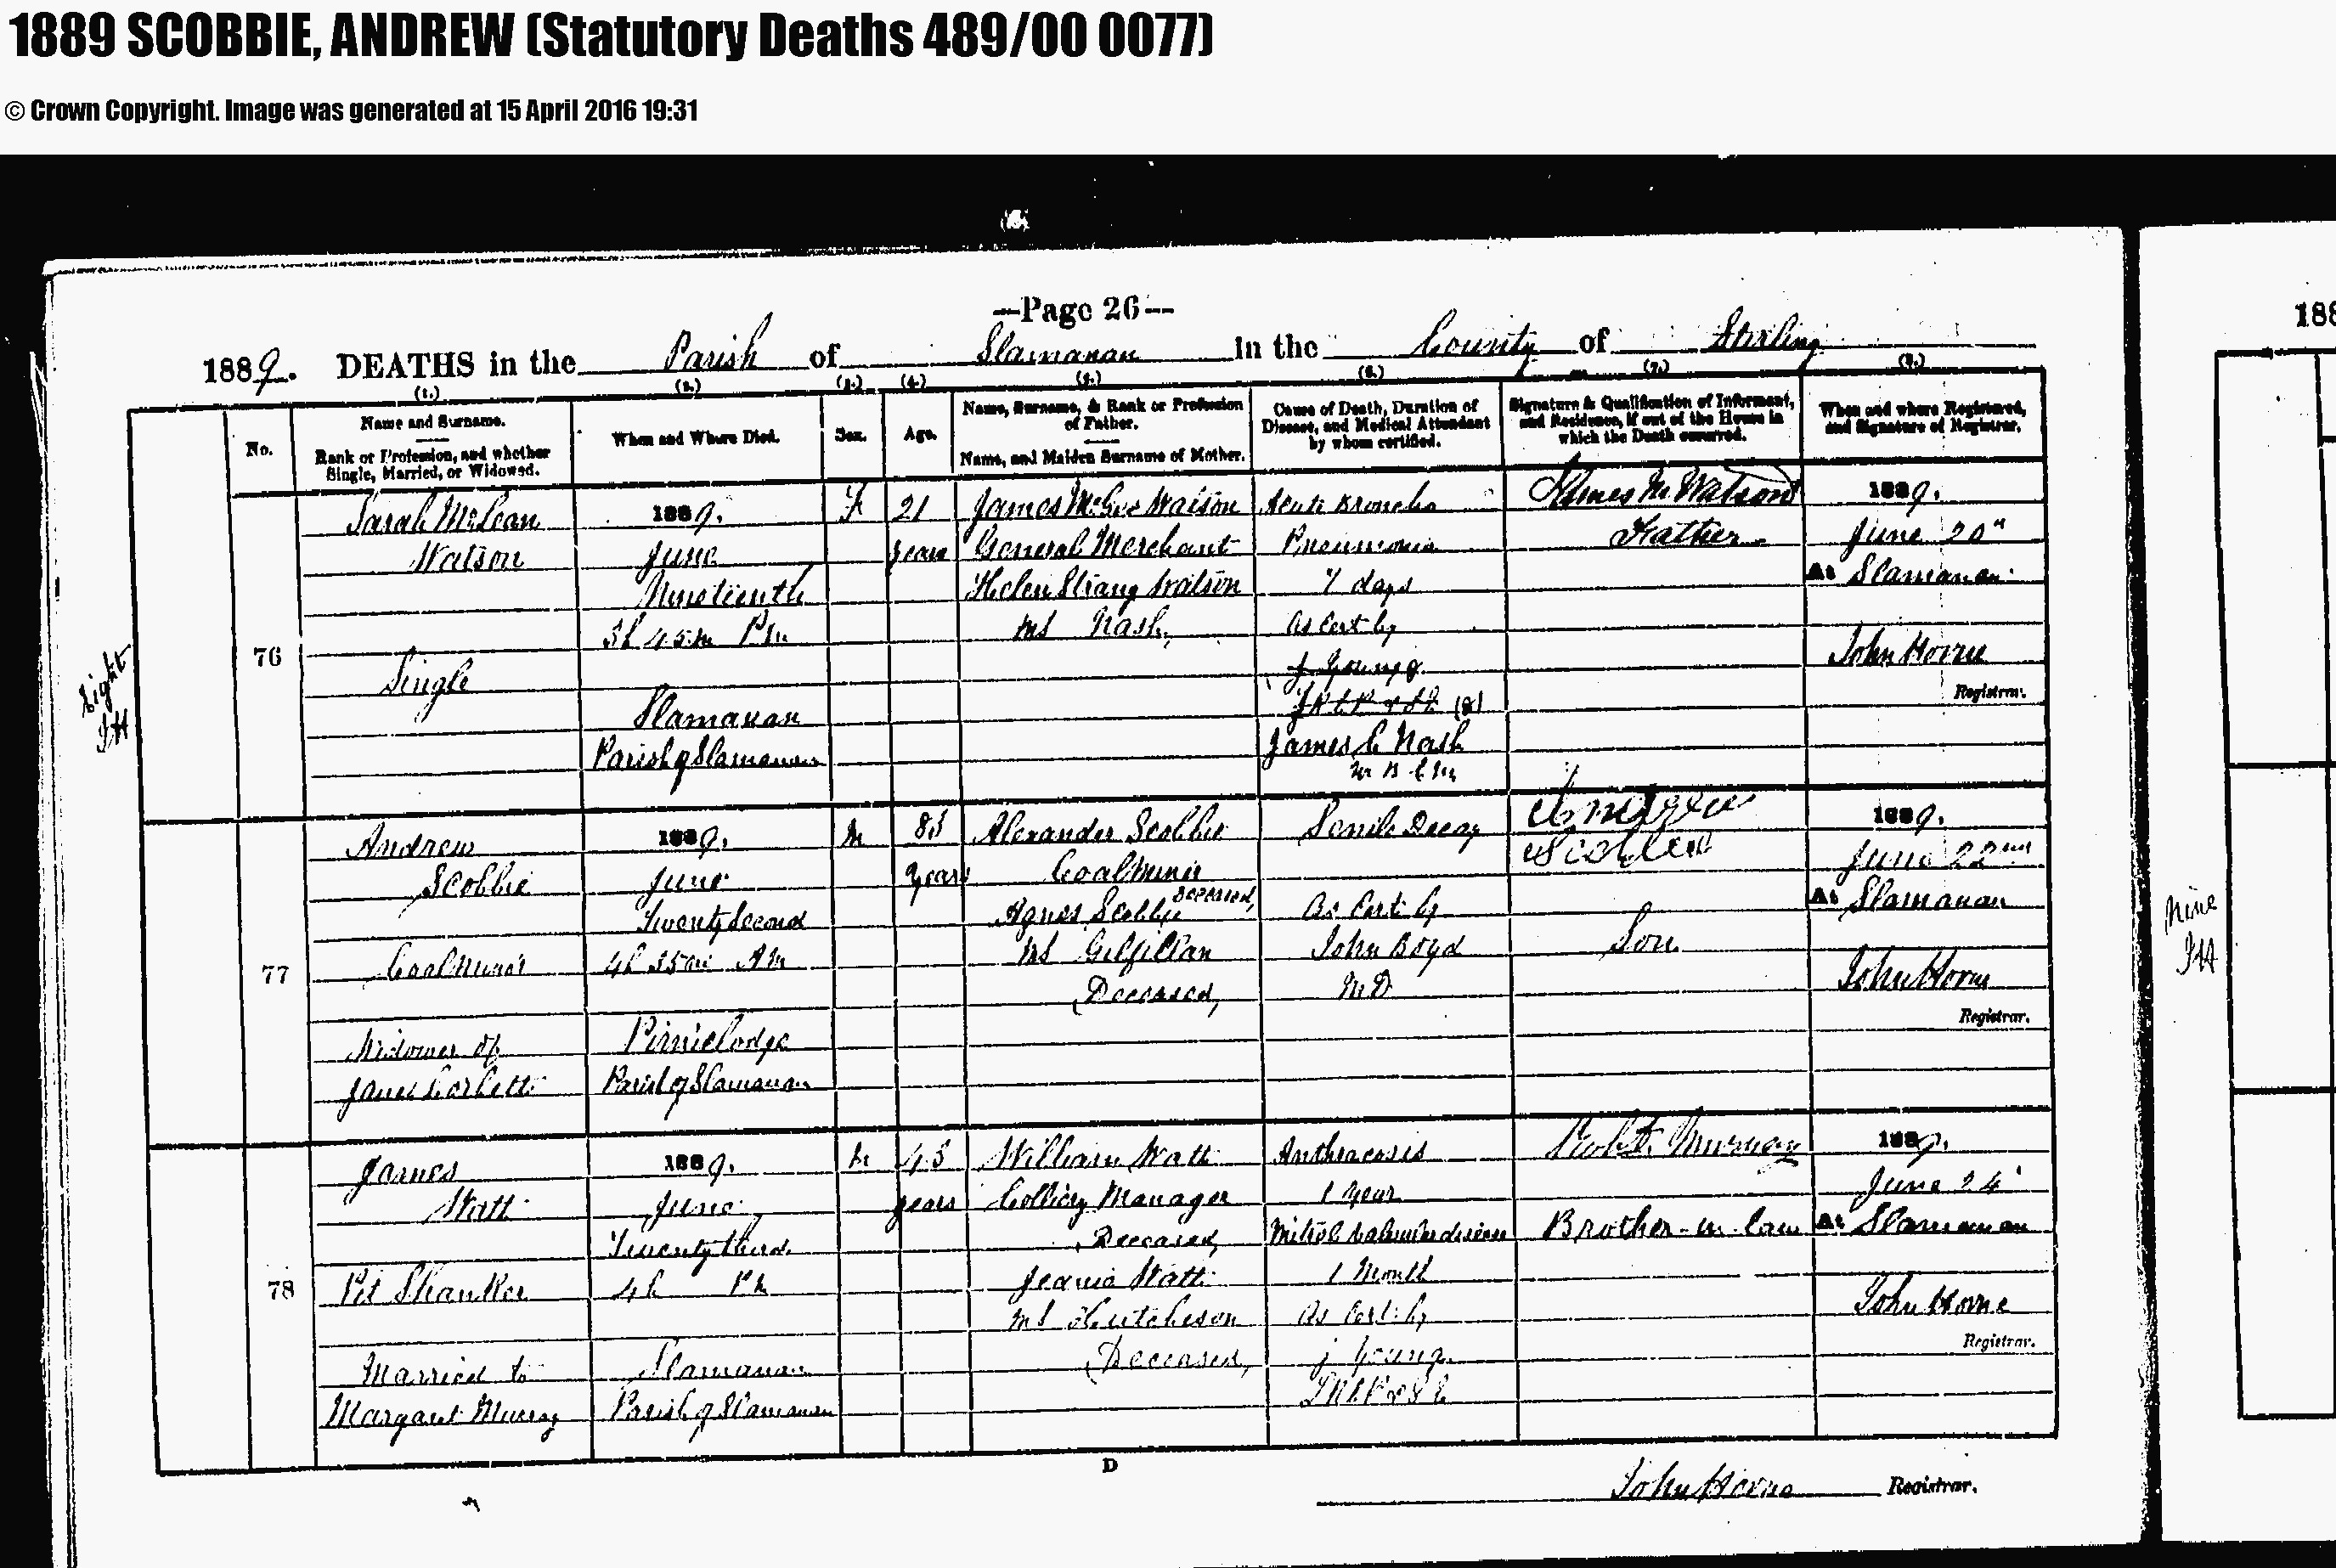 1889 SCOBBIE, ANDREW (Statutory Deaths 489/00 0077)
© Crown Copyright. Image was generated at 15 April 2016 19:31
—Page 26—
1889. DEATHS in the Parish of Slamanan in the County of Stirling
(1.) (2.) (3.) (4.) (5.) (6.) (7.) (8.)
No.
Name and Surname.
Rank or Profession, and whether
Single, Married, or Widowed.
When and Where Died.
Sex.
Age.
Name, Surname, & Rank or Profession
of Father.
Name, and Maiden Surname of Mother.
Cause of Death, Duration of
Disease, and Medical Attendant
by whom certified.
Signature & Qualification of Informant,
and Residence, if out of the House in
which the Death occurred.
When and where Registered,
and Signature of Registrar.
Eight
JH
76
Sarah McLean
Watson
Single
1889.
June
Nineteenth
3h 45m PM
Slamanan
Parish of Slamanan
F
21
years
James McGee Watson
General Merchant
Helen Strang Watson
MS Nash
Acute Broncho
Pneumonia
7 days
As Cert by
J Young
James C Nash
M B C M
James M Watson
Father
1889.
June 20"
At Slamanan
John Horne
Registrar.
77
Andrew
Scobbie
Coalminer
Widower of
Janet Corbett
1889.
June
Twenty Second
4h 35m AM
Pirnielodge
Parish of Slamanan
M
83
years
Alexander Scobbie
Coalminer
Deceased,
Agnes Scobbie
MS Gilfillan
(Deceased,
Senile Decay
As Cert by
John Boyd
M.D
Andrew
Scobbie
Son
1889.
June 22nd
At Slamanan
John Horne
Registrar.
Nine
JH
78
James
Watt
Pit Shanker
Married to
Margaret Murray
1889.
June
Twenty third
4h PM
Slamanan
Parish of Slamanan
M
45
years
William Watt
Colliery Manager
(Deceased,
Jeanie Watt
MS Hutcheson
(Deceased,
Anthracosis
1 Year
Mitral Valvular disease
1 Month
As Cert by
J Young
LRCP & S E
Robt. Murray
Brother-in-law
1889.
June 24
At Slamanan
John Horne
Registrar.
D
John Horne Registrar.
188